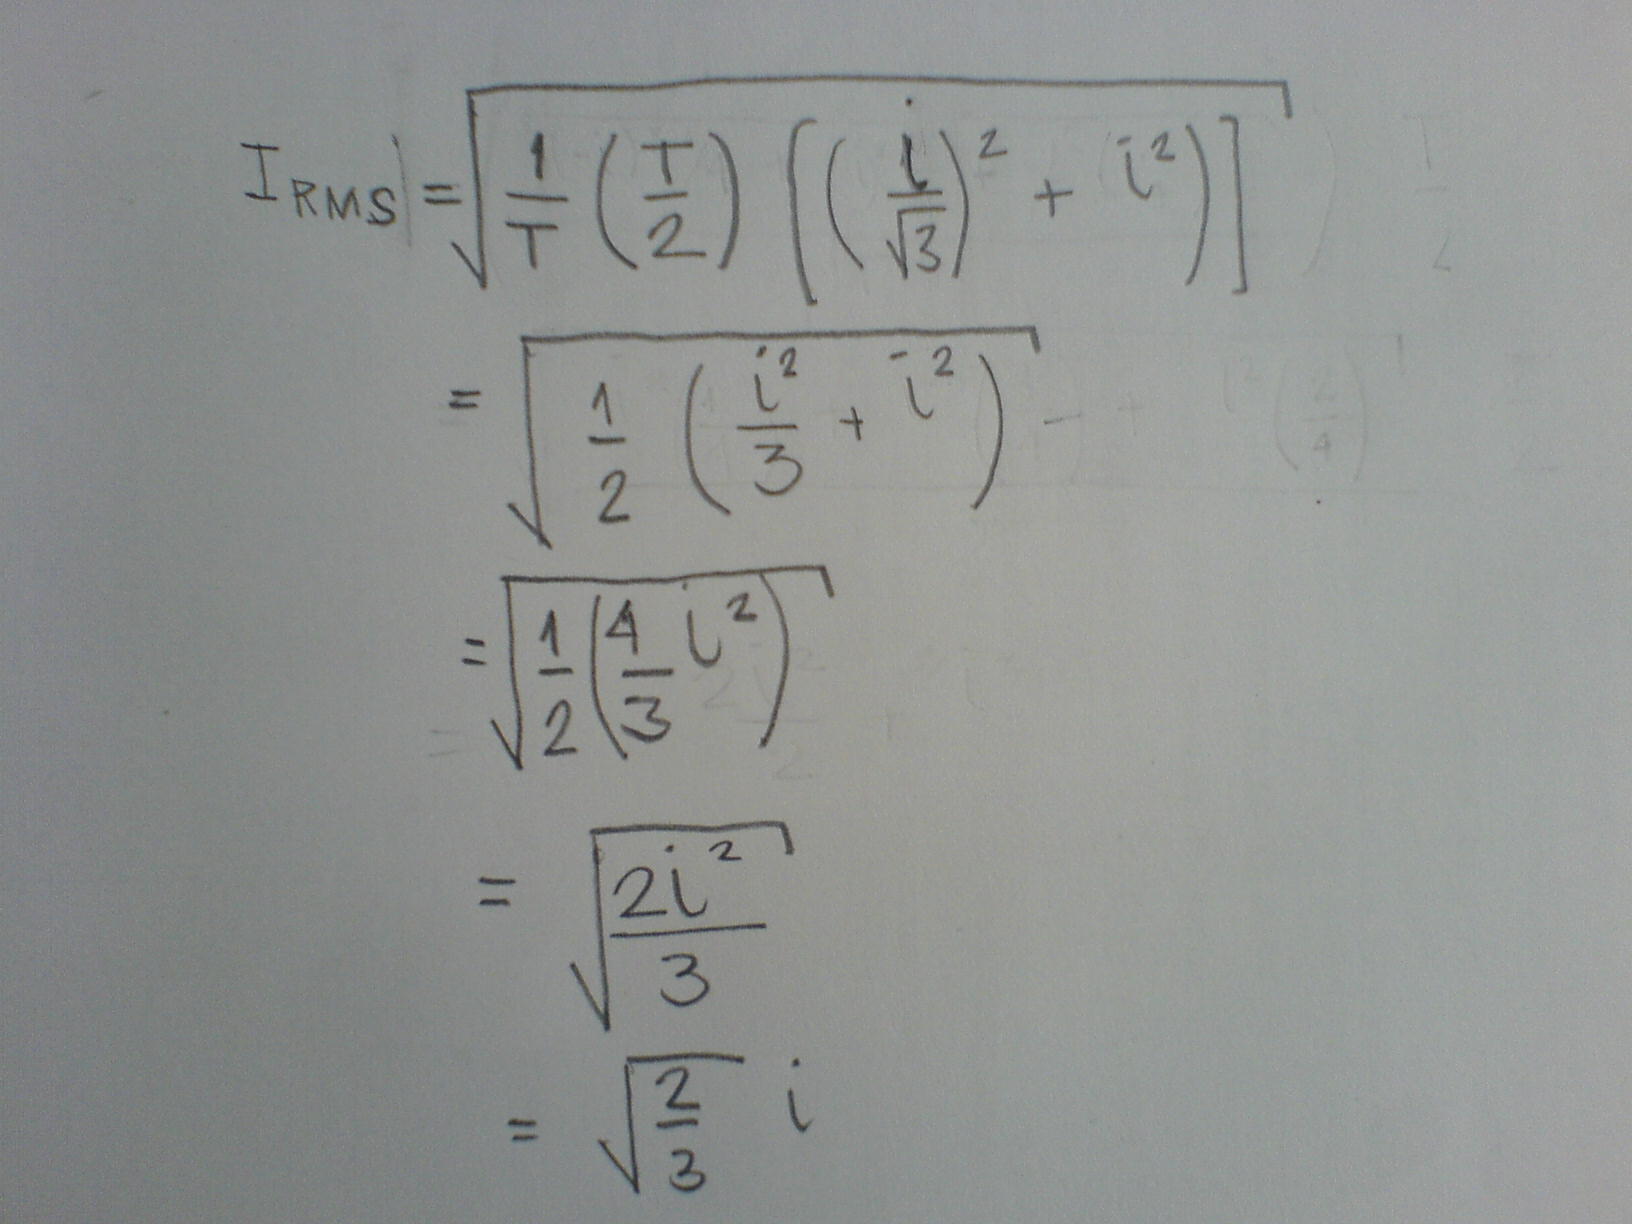 I RMS = √(1/T (T/2) [((i/√3)² + i²)])
= √(1/2 (i²/3 + i²))
= √(1/2 (4/3 i²))
= √(2i²/3)
= √(2/3) i